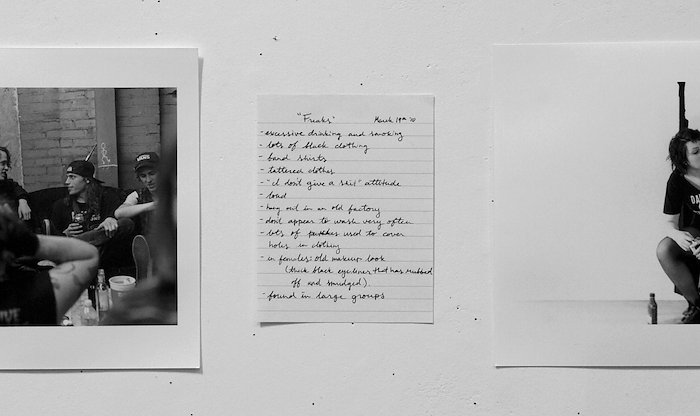 "Freaks" March 19th '10
- excessive drinking and smoking
- lots of black clothing
- band shirts
- tattered clothes
- "I don't give a shit" attitude
- loud
- hang out in an old factory
- don't appear to wash very often
- lots of patches used to cover
holes in clothing
- in females: old makeup look
(thick black eyeliner that has rubbed
off and smudged).
- found in large groups
VANS
DA